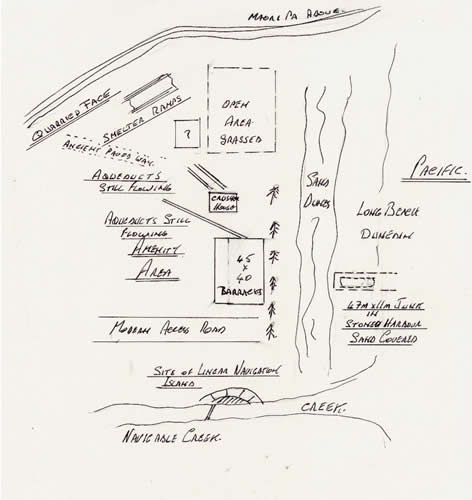 MAORI PA ABOVE.
QUARRIED FACE
SMELTER RAMPS
ANCIENT PAVED WAY.
?
OPEN
AREA
GRASSED
AQUEDUCTS
STILL FLOWING
CRUSHER
HOUSE
AQUEDUCTS STILL
FLOWING
AMENITY
AREA
45
x
40
BARRACKS
SAND
DUNES
PACIFIC.
LONG BEACH
DUNEDIN
47M x 11M JUNK
IN
STONED HARBOUR
SAND COVERED
MODERN ACCESS ROAD
SITE OF LINEAR NAVIGATION
ISLAND
CREEK.
NAVIGABLE CREEK.